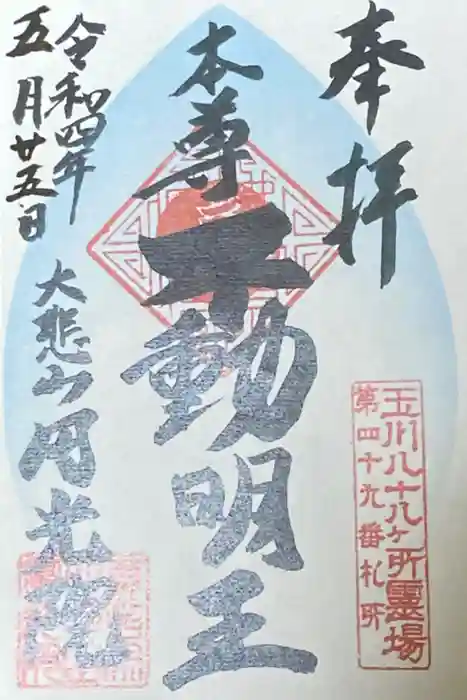 奉拝
玉川八十八ヶ所霊場
第四十九番札所
本尊
不動明王
令和四年
五月廿五日
大悲山